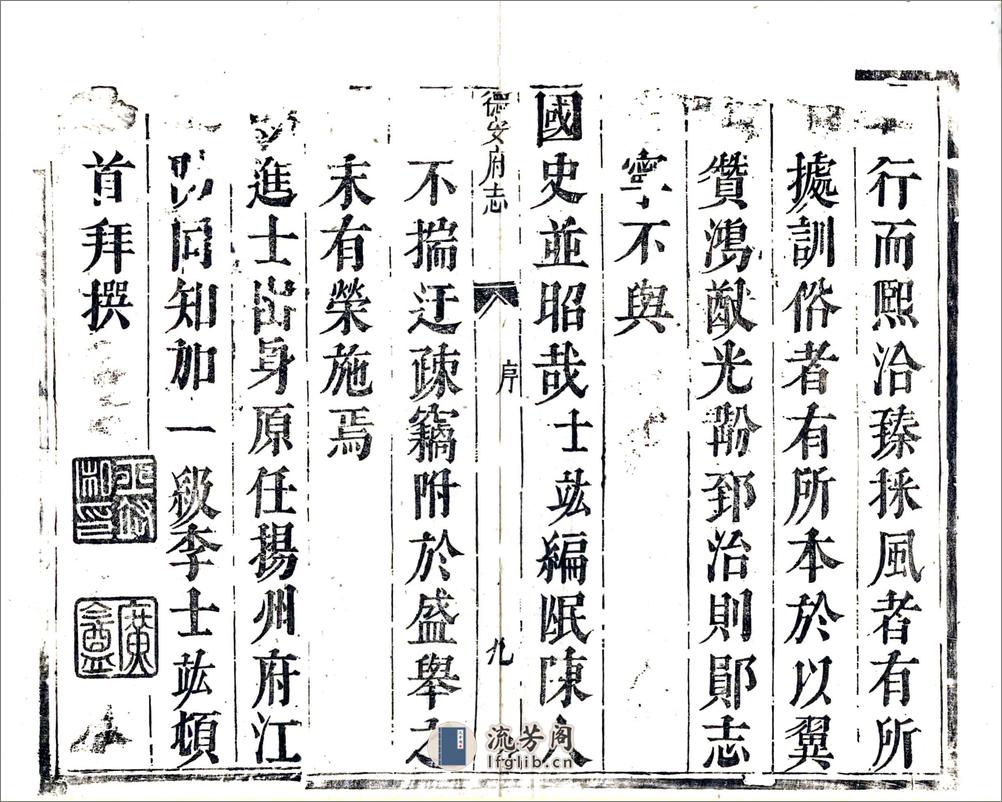 行而熙洽臻採風者有所
據訓俗者有所本於以翼
贊鴻猷光黼郅治則鄖志
寧不與
國史並昭哉士竑編氓陳人
德安府志
序
九
不揣迂疎竊附於盛舉之
末有榮施焉
進士出身原任揚州府江
防同知加一級李士竑頓
首拜撰
流芳阁
lfglib.cn